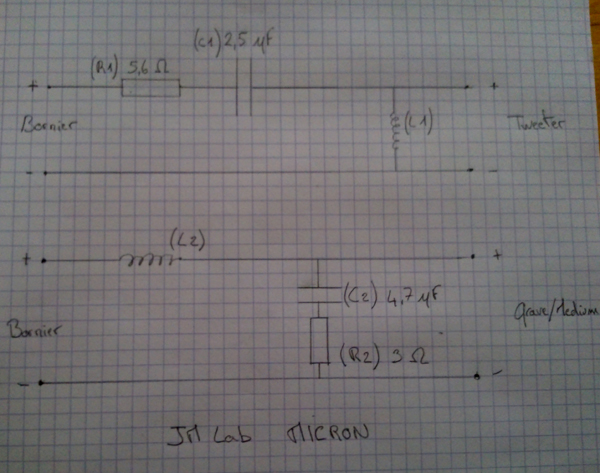 (C1) 2,5 µF
(R1) 5,6 Ω
+ +
Bornier (L1) Tweeter
- -
(L2)
+ +
(C2) 4,7 µF
Bornier Grave/Medium
(R2) 3 Ω
- -
JM Lab MICRON